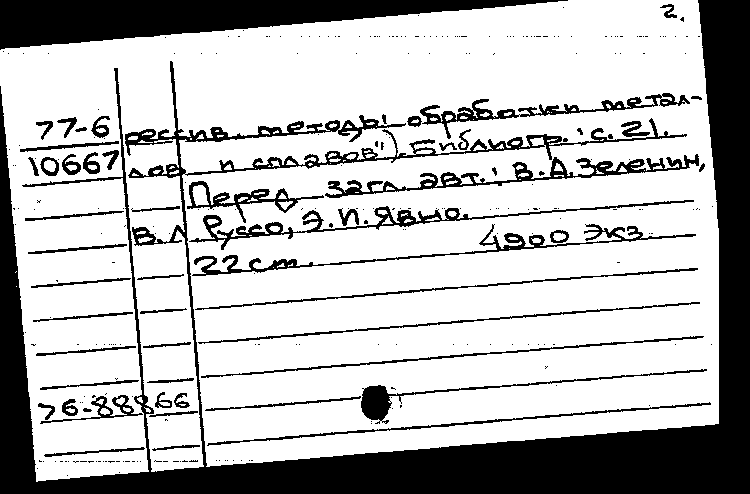 2.
77-6 рессив. методы обработки метал-
10667 лов и сплавов"). Библиогр.: с. 21.
Перед загл. авт.: В.А. Зеленин,
В.Л. Руссо, Э.И. Явно.
22 cm. 4900 экз.
76-88866